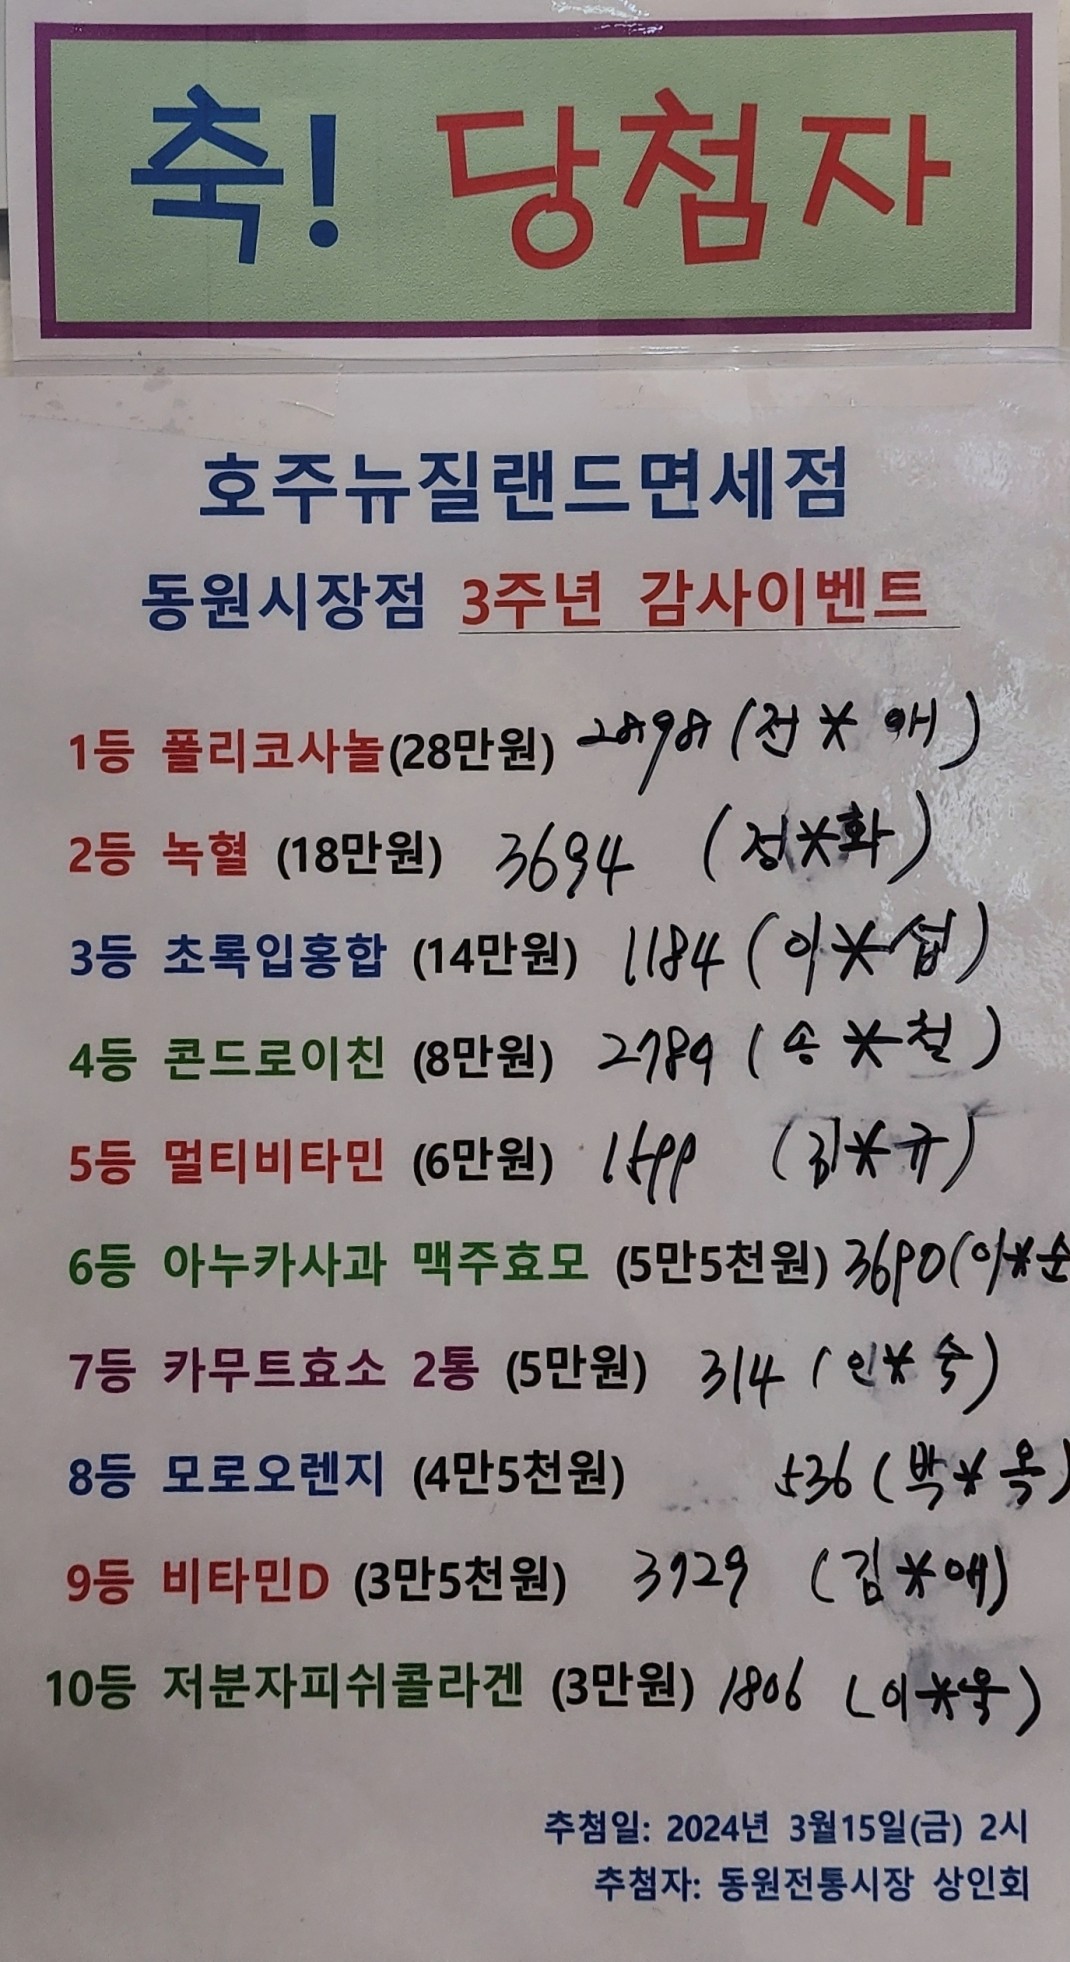 축! 당첨자
호주뉴질랜드면세점
동원시장점 3주년 감사이벤트
1등 폴리코사놀(28만원) 2898 (전*애)
2등 녹혈 (18만원) 3694 (정*화)
3등 초록입홍합 (14만원) 1184 (이*섭)
4등 콘드로이친 (8만원) 2784 (송*철)
5등 멀티비타민 (6만원) (김*규)
6등 아누카사과 맥주효모 (5만5천원) 3690 (이*순
7등 카무트효소 2통 (5만원) 314 (인*숙)
8등 모로오렌지 (4만5천원) 536 (박*옥)
9등 비타민D (3만5천원) 3729 (김*애)
10등 저분자피쉬콜라겐 (3만원) 1806 (이*욱)
추첨일: 2024년 3월15일(금) 2시
추첨자: 동원전통시장 상인회